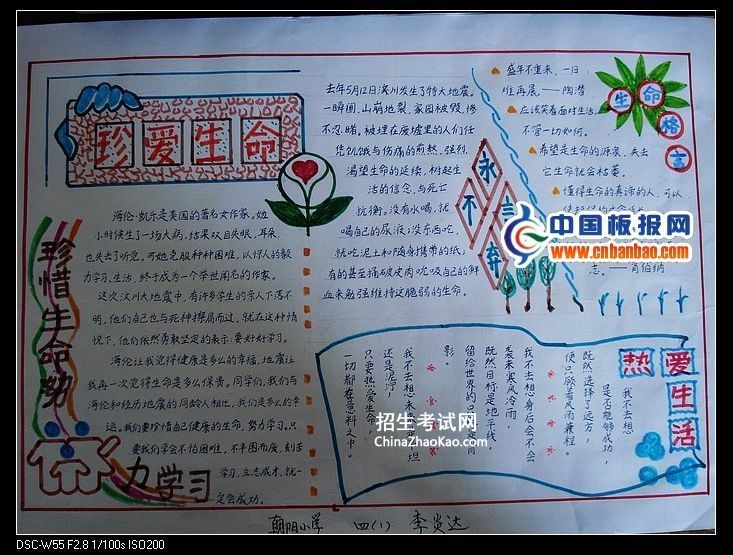 珍爱生命
海伦·凯尔是美国的著名女作家,她
小时候生了一场大病,结果双目失明、耳朵
也失去了听觉,可她克服种种困难,以惊人的毅
力学习、生活,终于成为一个举世闻名的作家。
这次汶川大地震中,有许多学生的亲人下落不
明,他们自己也与死神擦肩而过,就在这种情
况下,他们依然勇敢坚定的表示:要好好学习。
海伦让我觉得健康是多么的幸福,地震让
我再一次觉得生命是多么保贵。同学们,我们与
海伦和经历地震的同龄人相比,我们是多么的幸
运。我们要珍惜自己健康的生命,努力学习。只
要我们学会不怕困难,不半图而废,刻苦
学习,立志成才,就一
定会成功。
珍惜生命努
力学习
去年5月12日汶川发生了特大地震。
一瞬间,山崩地裂,家园被毁,惨
不忍睹,被埋在废墟里的人们任
凭饥饿与伤痛的煎熬,强烈
渴望生命的延续,树起生
活的信念,与死亡
抗衡。没有水喝,就
喝自己的尿液;没东西吃,
就吃泥土和随身携带的纸;
有的甚至捅破皮肉吮吸自己的鲜
血来勉强维持这脆弱的生命。
永不言弃
生命格言
盛年不重来,一日
难再晨。——陶潜
应该笑着面对生活,
不管一切如何。
希望是生命的源泉,失去
它生命就会枯萎。
懂得生命的真谛的人,可以
志。——肖伯纳
中国板报网
www.cnbanbao.com
热爱生活
我不去想
是否能够成功,
既然选择了远方,
便只顾着风雨兼程。
我不去想身后会不会
袭来寒风冷雨
既然目标是地平线,
留给世界的只能是背
影。
我不去想未来是平坦
还是泥泞,
只要热爱生命,
一切都在意料之中。
招生考试网
ChinaZhaoKao.com
朝阳小学 四(1) 李炎达
DSC-W55 F2.8 1/100s ISO200